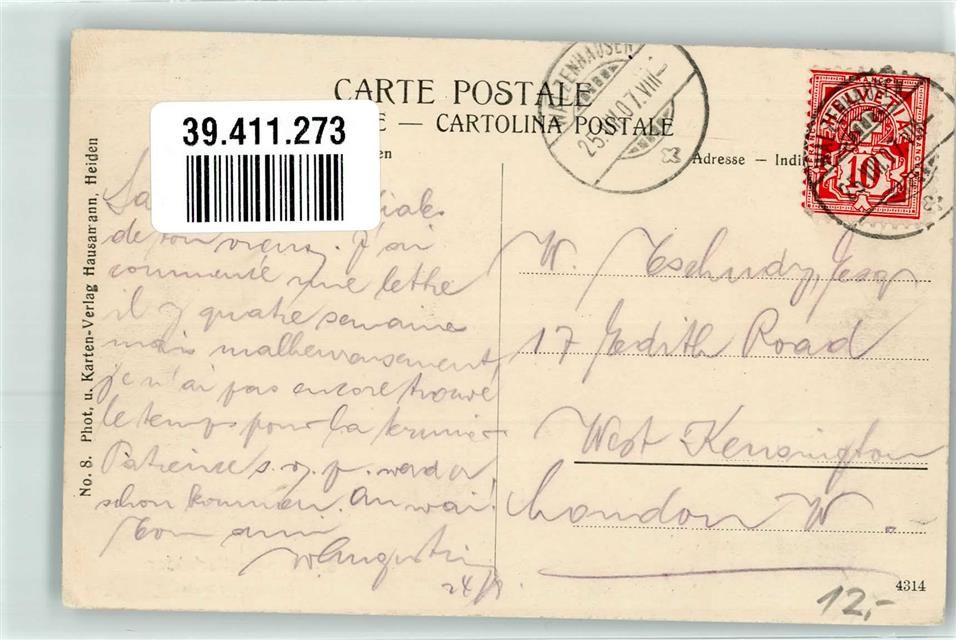 CARTE POSTALE
E — CARTOLINA POSTALE
39.411.273
Adresse — Indi
WALZENHAUSEN
25. VII.07. VIII—
10
No. 8. Phot, u. Karten-Verlag Hausamann, Heiden
de ton vieux. J'ai
commencé une lettre
il y quatre semaines
mais malheureusement,
je n'ai pas encore trouvé
le temps pour la terminer
Patience s. v. p. werde
schon kommen. Au wai!
Ton ami
24/8
W. Tschudy, Esq
17 Edith Road
West Kensington
London W.
4314
12,-